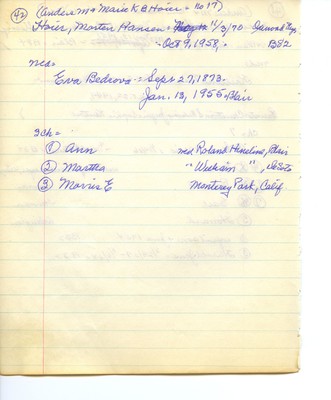 42 (Anders M & Marie K B Hoier = no 17)
Hoier, Morten Hansen = 11/3/70
= Oct 9, 1958, = 1382
ned =
Eva Bedrova = Sept 27, 1873.
Jan. 13, 1955 = Blair
3 ch =
① Ann ned Roland Hineline, Blair
② Martha " William " , DeSoto
③ Morris E Monterey Park, Calif